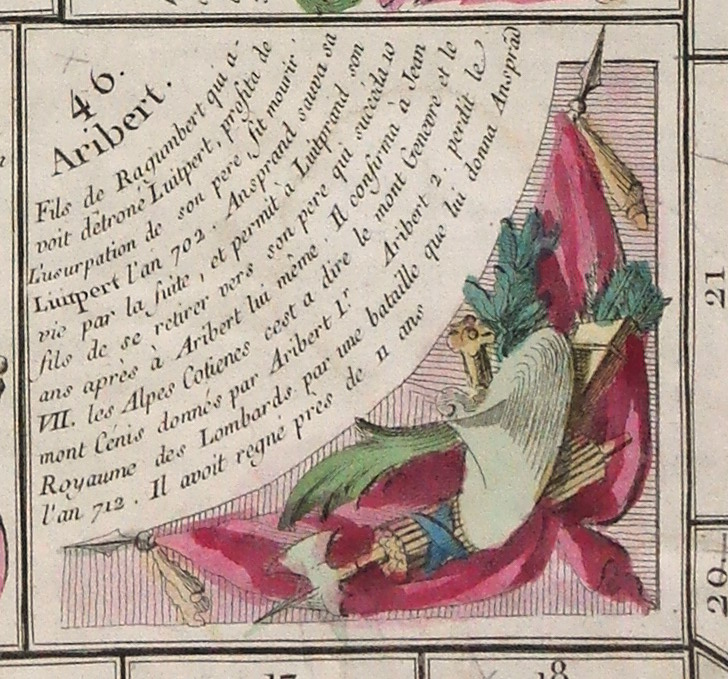 46.
Aribert.
Fils de Ragumbert qui a-
voit détroné Luitpert, profita de
L'usurpation de son pere, fit mourir
Luitpert l'an 702. Ansprand sauva sa
vie par la fuite, et permit à Luitprand son
fils de se retirer vers son pere qui succéda 10
ans après à Aribert lui même. Il confirma à Jean
VII. les Alpes Cotienes cest a dire le mont Genevre et le
mont Cénis donnés par Aribert I.r Aribert 2. perdit le
Royaume des Lombards par une bataille que lui donna Ansprãd
l'an 712. Il avoit regné près de 11 ans
21
20
17
18